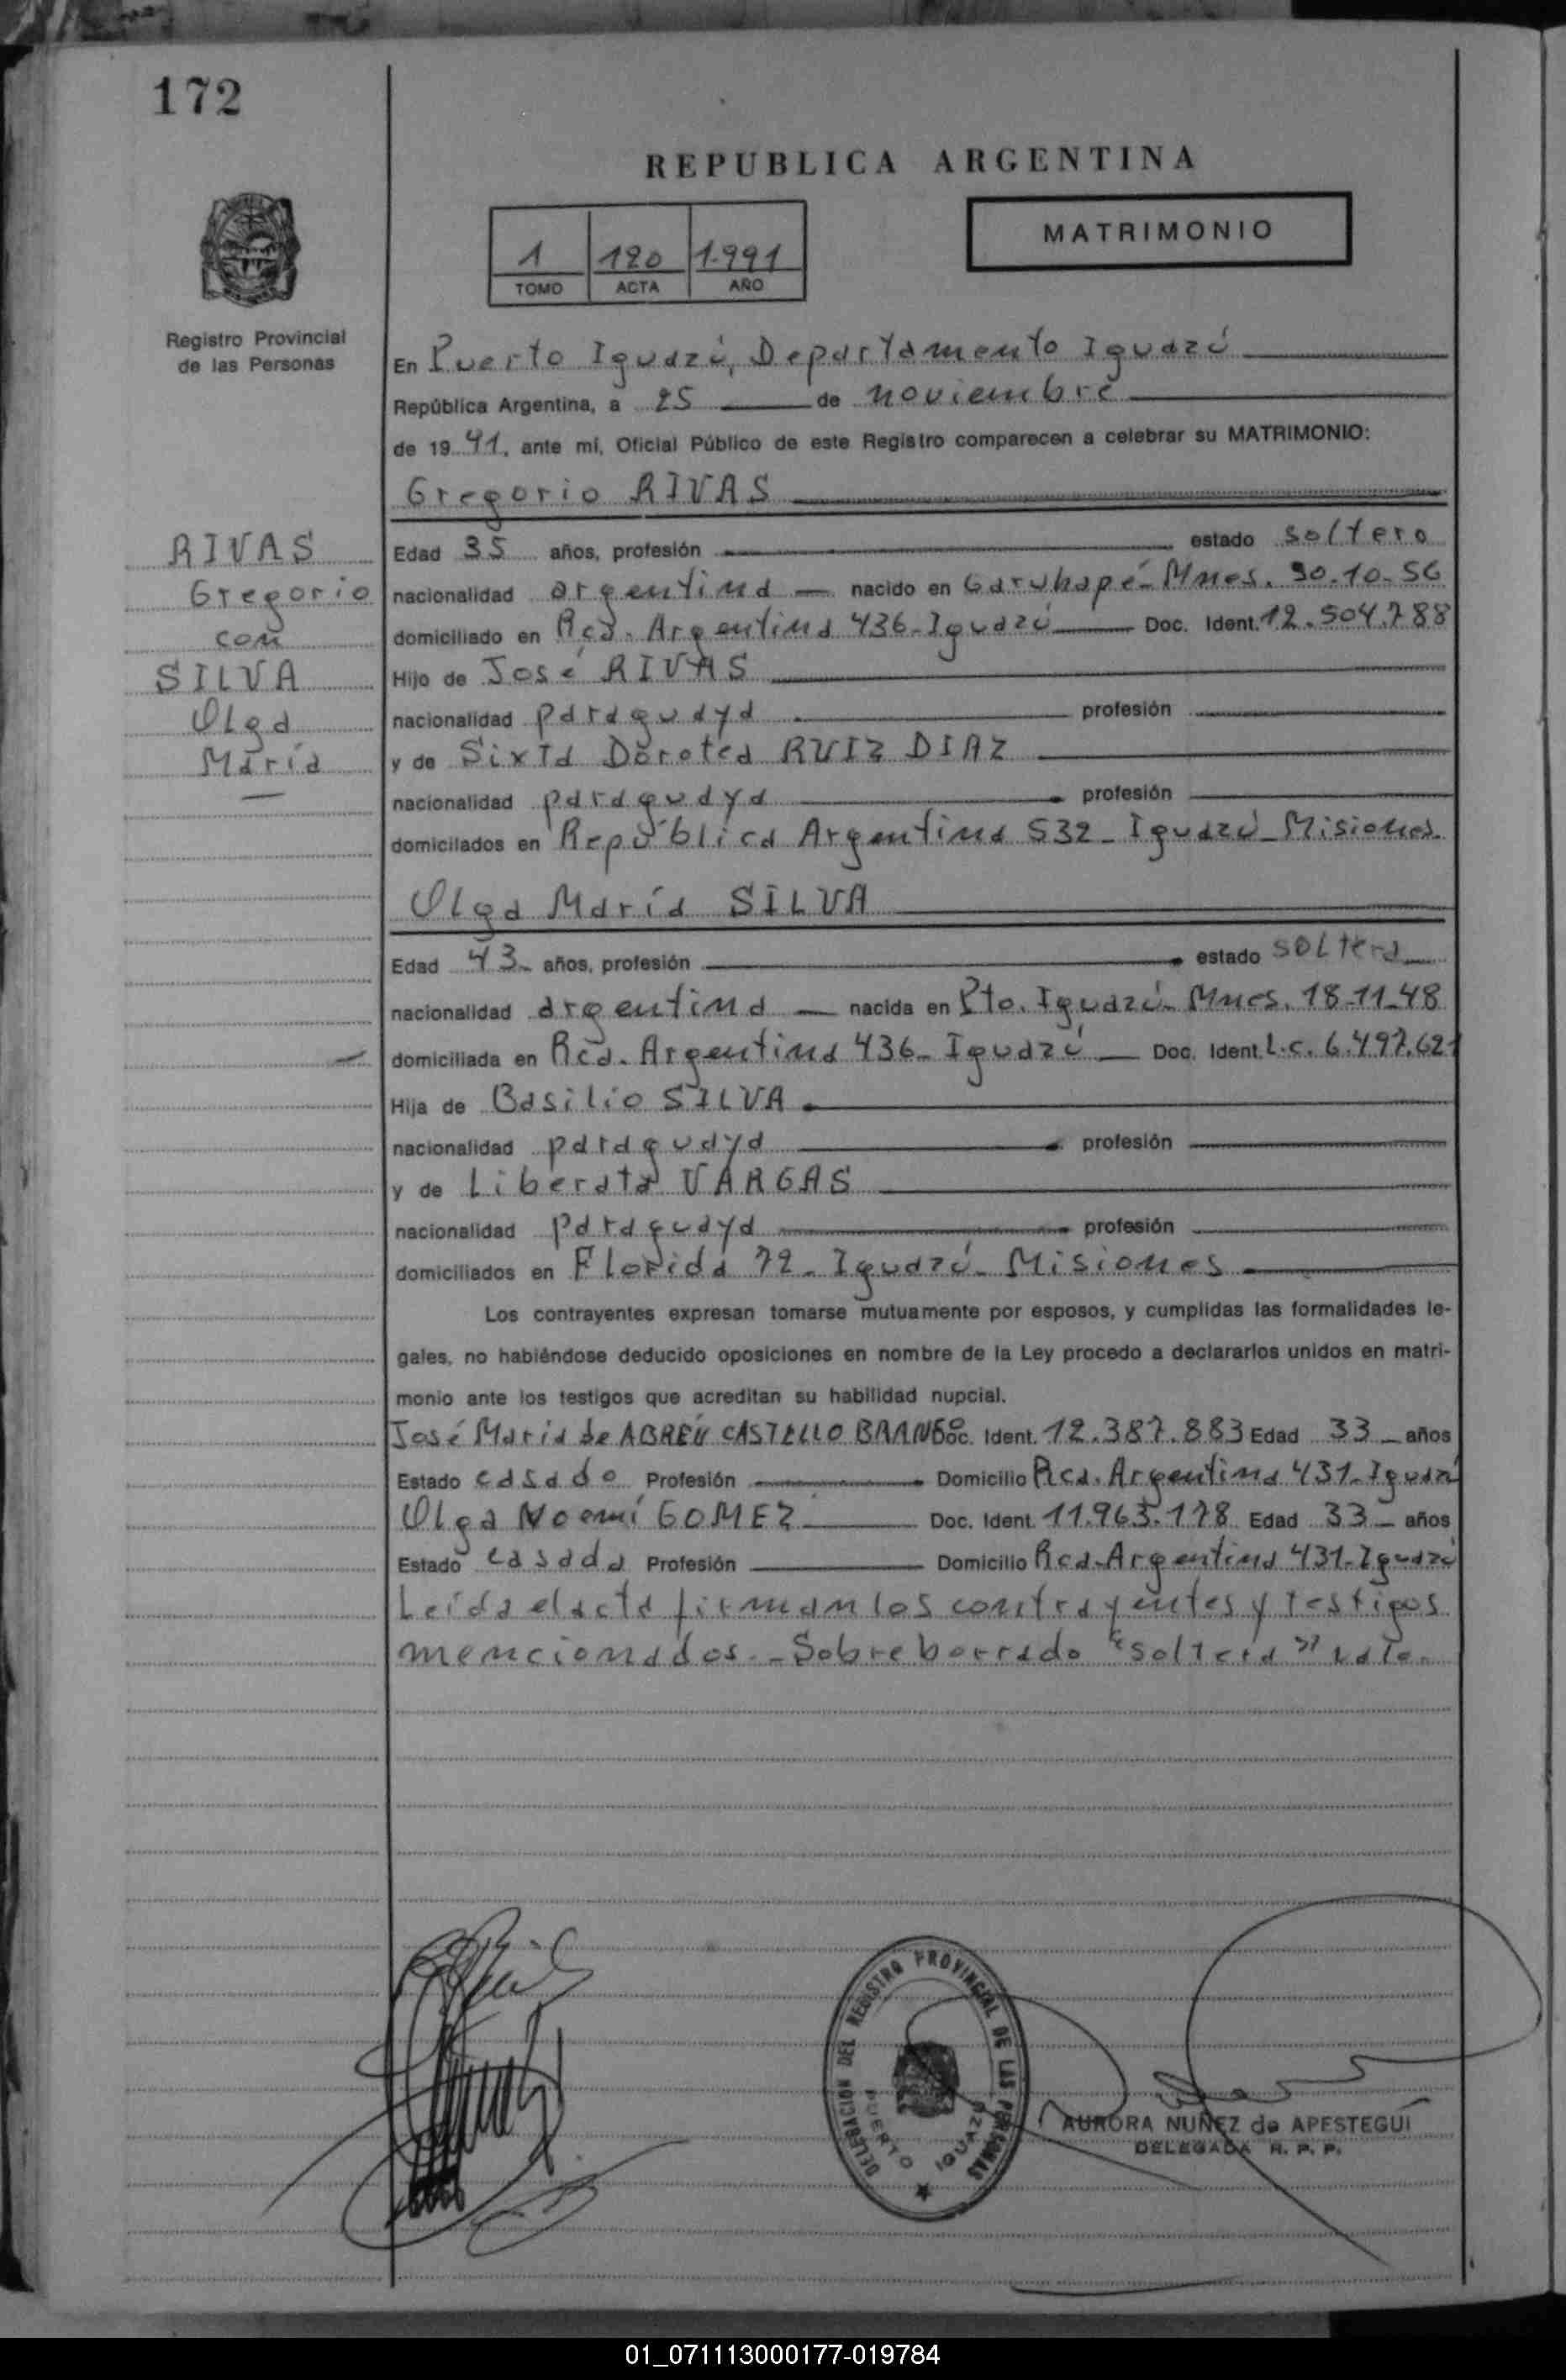 172
REPUBLICA ARGENTINA
MATRIMONIO
1 120 1.991
TOMO ACTA AÑO
Registro Provincial
de las Personas
En Puerto Iguazú, Departamento Iguazú
República Argentina, a 25 de noviembre
de 19 91, ante mi, Oficial Público de este Registro comparecen a celebrar su MATRIMONIO:
Gregorio RIVAS
RIVAS
Gregorio
con
SILVA
Olga
María
Edad 35 años, profesión estado soltero
nacionalidad argentina nacido en Garuhapé-Mnes. 30-10-56
domiciliado en Rca. Argentina 436-Iguazú Doc. Ident. 12.504.788
Hijo de José RIVAS
nacionalidad paraguaya profesión
y de Sixta Dorotea RUIZ DIAZ
nacionalidad paraguaya profesión
domicilados en República Argentina 532- Iguazú-Misiones.
Olga María SILVA
Edad 43 años, profesión estado soltera
nacionalidad argentina nacida en Pto. Iguazú-Mnes. 18-11-48
domiciliada en Rca. Argentina 436- Iguazú Doc. Ident. L.c. 6.497.621
Hija de Basilio SILVA
nacionalidad paraguaya profesión
y de Liberata VARGAS
nacionalidad paraguaya profesión
domiciliados en Florida 72- Iguazú- Misiones
Los contrayentes expresan tomarse mutuamente por esposos, y cumplidas las formalidades le-
gales, no habiéndose deducido oposiciones en nombre de la Ley procedo a declararlos unidos en matri-
monio ante los testigos que acreditan su habilidad nupcial.
José María de ABREU CASTELLO BRANCO Doc. Ident. 12.387.883 Edad 33 años
Estado casado Profesión Domicilio Rca. Argentina 431-Iguazú
Olga Noemí GOMEZ Doc. Ident. 11.963.178 Edad 33 años
Estado casada Profesión Domicilio Rca. Argentina 431-Iguazú
Leída el acta firman los contrayentes y testigos
mencionados.-Sobreborrado "soltera" vale.
DELEGACION DEL REGISTRO PROVINCIAL DE LAS PERSONAS
PUERTO IGUAZU
AURORA NUÑEZ de APESTEGUI
DELEGADA R. P. P.
01_071113000177-019784